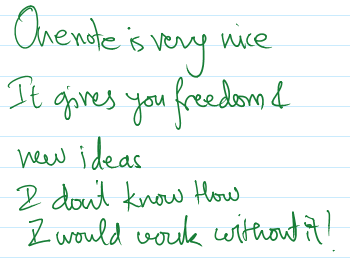 Onenote is very nice
It gives you freedom &
new ideas
I don't know How
I would work without it!